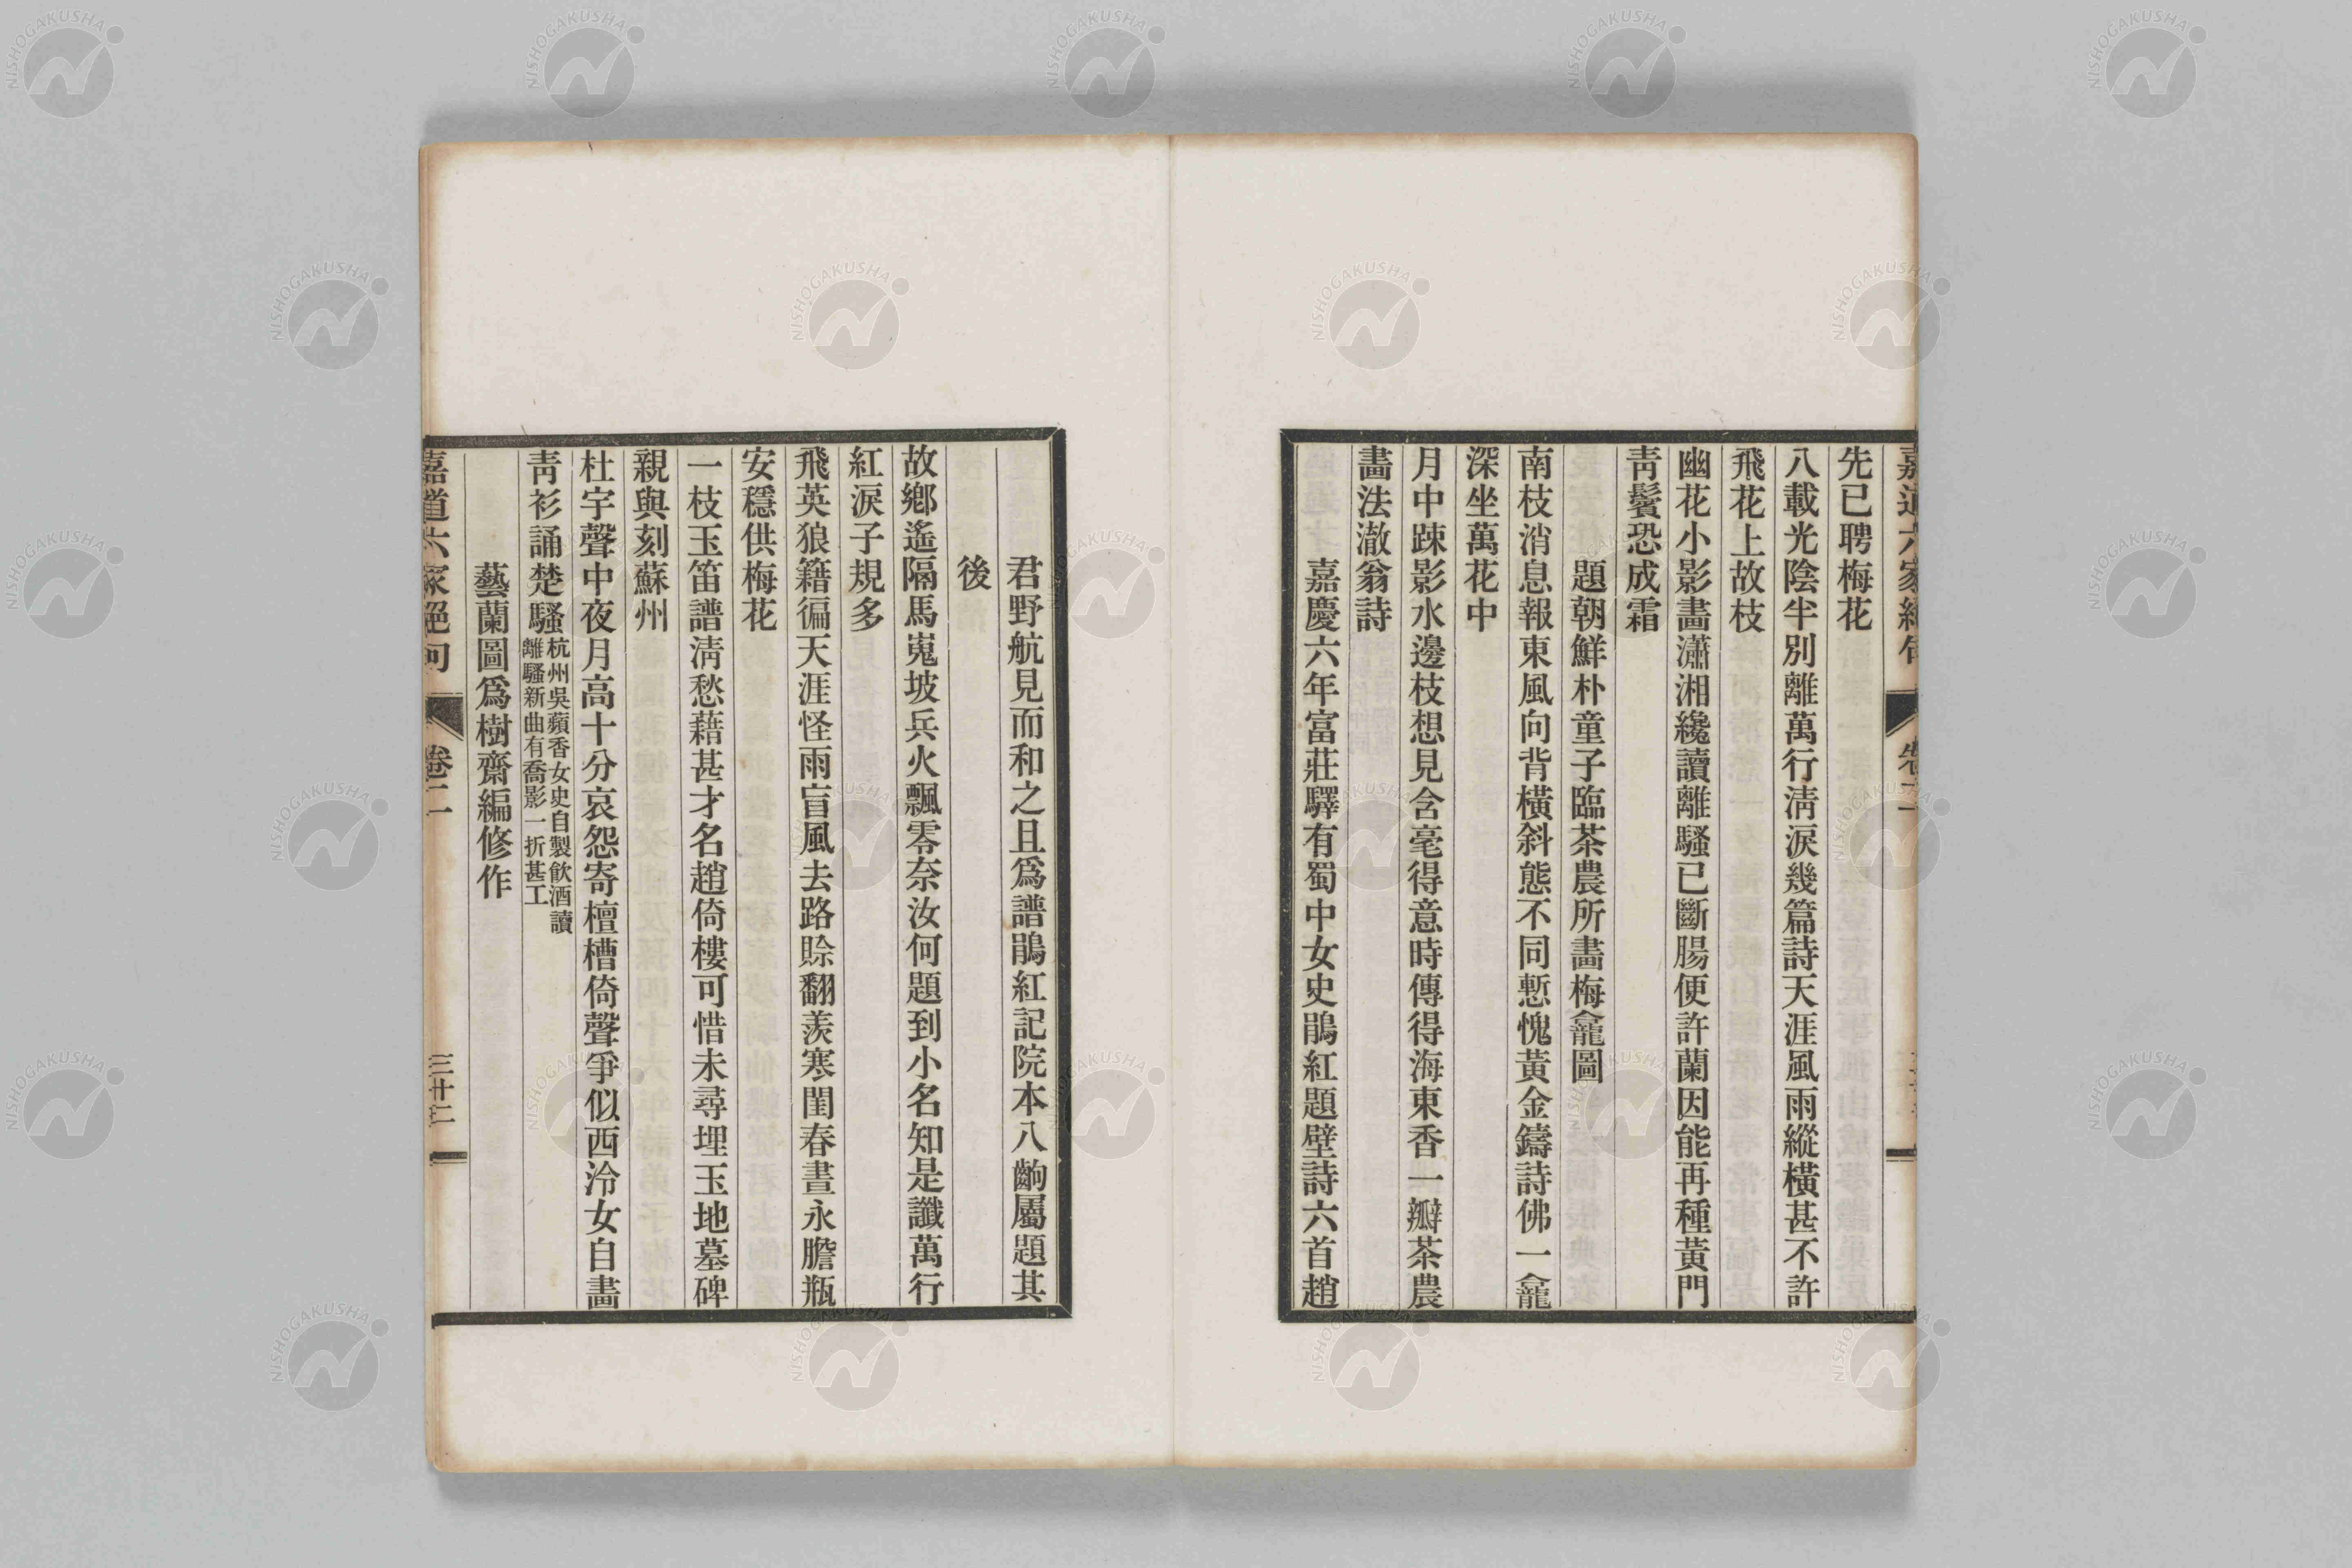 嘉道六家絕句
卷二
先已聘梅花
八載光陰半別離萬行淸淚幾篇詩天涯風雨縱橫甚不許
飛花上故枝
幽花小影畫瀟湘纔讀離騷已斷腸便許蘭因能再種黃門
靑鬢恐成霜
題朝鮮朴童子臨茶農所畫梅龕圖
南枝消息報東風向背橫斜態不同慙愧黃金鑄詩佛一龕
深坐萬花中
月中踈影水邊枝想見含毫得意時傳得海東香一瓣茶農
畫法澈翁詩
嘉慶六年富莊驛有蜀中女史鵑紅題壁詩六首趙
君野航見而和之且爲譜鵑紅記院本八齣屬題其
後
故鄕遙隔馬嵬坡兵火飄零奈汝何題到小名知是讖萬行
紅淚子規多
飛英狼籍徧天涯怪雨盲風去路賒翻羨寒閨春晝永膽瓶
安穩供梅花
一枝玉笛譜淸愁藉甚才名趙倚樓可惜未尋埋玉地墓碑
親與刻蘇州
杜宇聲中夜月高十分哀怨寄檀槽倚聲爭似西泠女自畫
靑衫誦楚騷
杭州吳蘋香女史自製飮酒讀
離騷新曲有喬影一折甚工
藝蘭圖爲樹齋編修作
嘉道六家絕句
卷二
三十二
NISHOGAKUSHA